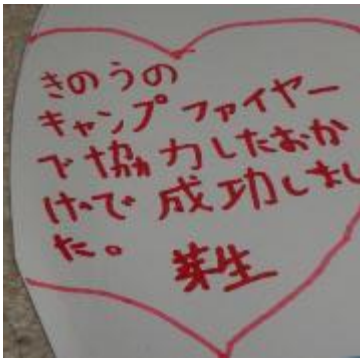 きのうの
キャンプファイヤー
で協力したおか
げで成功しまし
た。
芽生